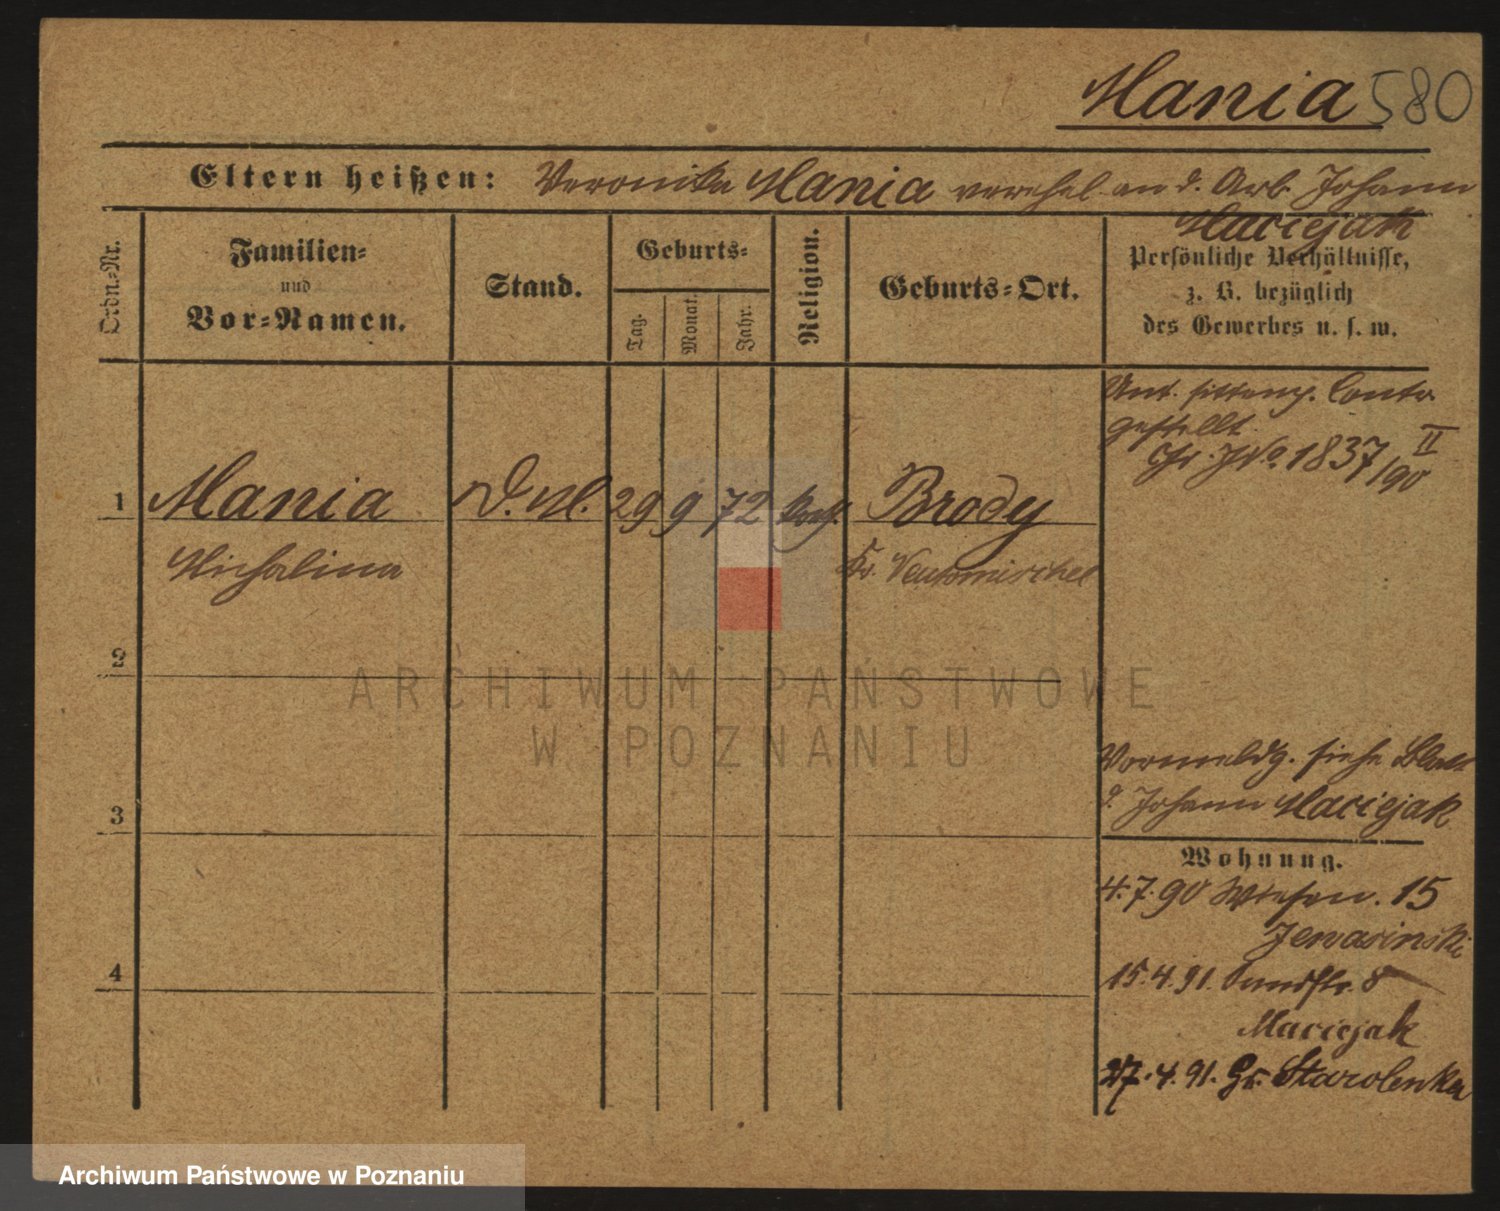 Mania 580
Eltern heißen: Veronika Mania verehel. an d. Arb. Johann
Maciejak
Ordn.=Nr.
Familien=
und
Vor=Namen.
Stand.
Geburts=
Tag.
Monat.
Jahr.
Religion.
Geburts=Ort.
Persönliche Verhältnisse,
z. B. bezüglich
des Gewerbes u. s. w.
Unt. sittenp. Contr.
gestellt.
J. No. 1837/90 II
1 Mania D. M. 29 9 72 kath. Brody
Michalina Kr. Neutomischel
2
3
4
Vormeldg. siehe Blatt
d. Johann Maciejak
Wohnung.
4.7.90 Wiesen. 15
Jewasinski
15.4.91. Sandstr. 8
Maciejak
27.4.91. Gr. Starolenka
ARCHIWUM PAŃSTWOWE
W POZNANIU
Archiwum Państwowe w Poznaniu